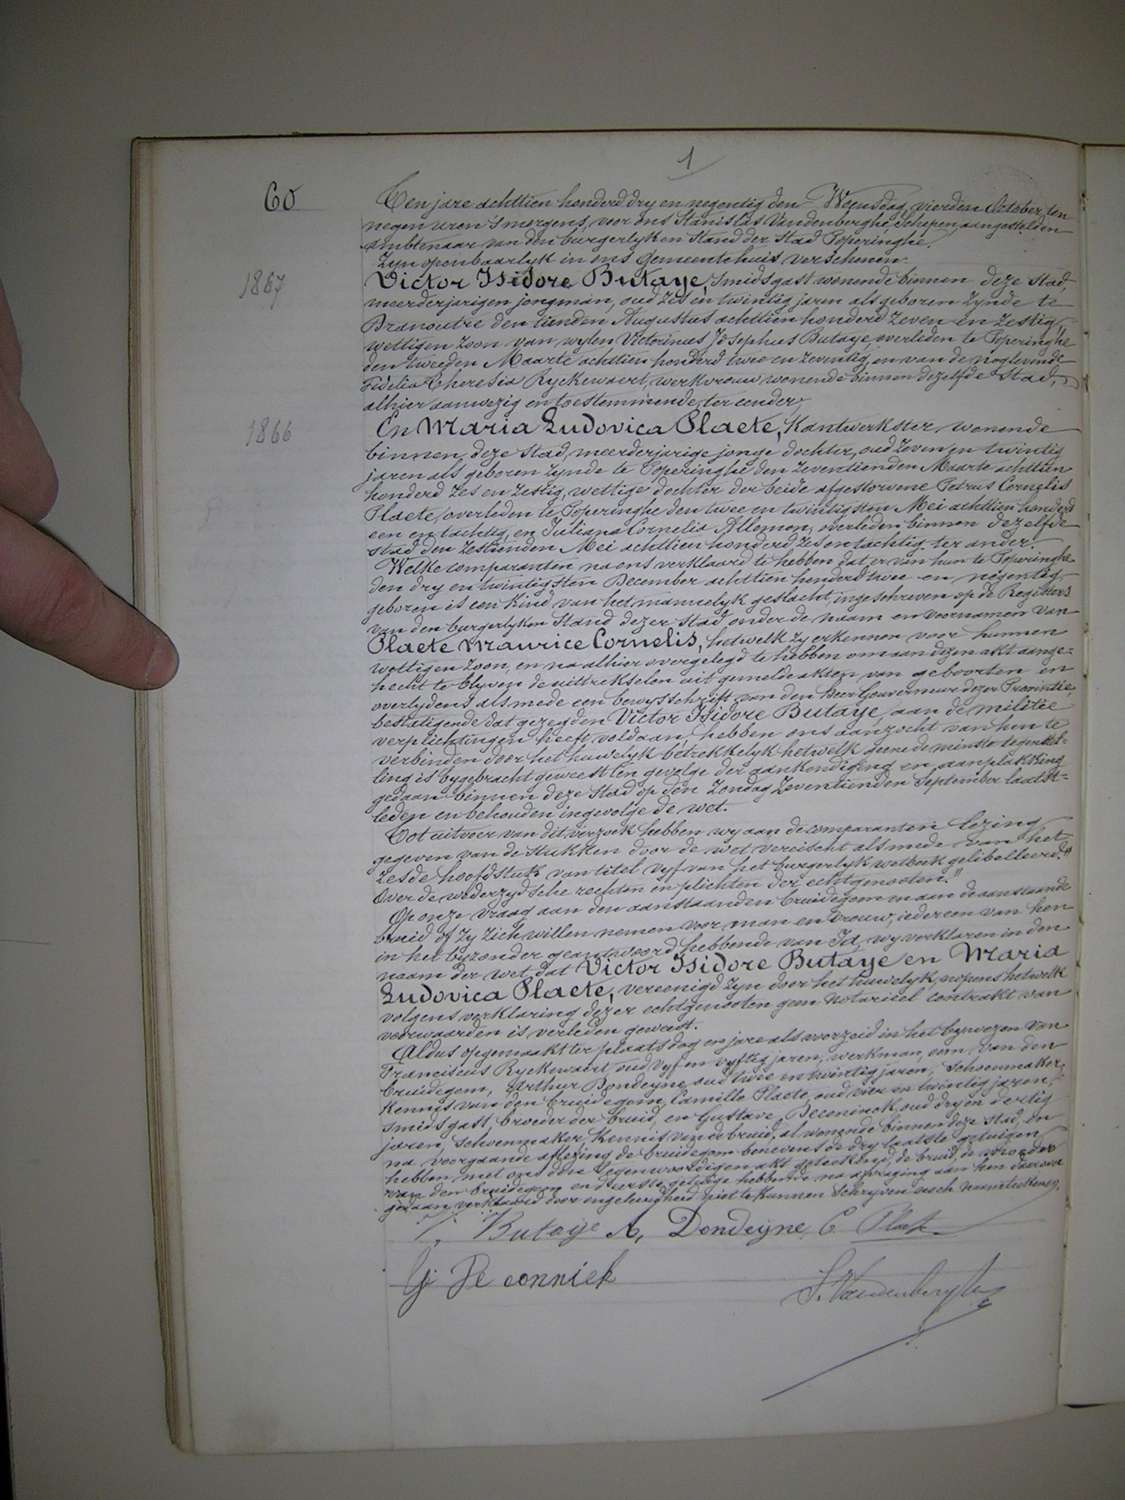 1
60
Ten jare achttien honderd dry en negentig den Woensdag, vierden October, ten
negen uren 's morgens, voor ons Stanislas Vandenberghe, Schepen, aangestelden
ambtenaar van den burgerlyken stand der Stad Poperinghe,
Zyn openbaarlyk in ons Gemeentehuis verschenen.
1867
Victor Isidore Butaye, smidsgast wonende binnen deze Stad,
meerderjarigen jongman, oud zes en twintig jaren als geboren zynde te
Dranoutre den tienden Augustus achttien honderd zeven en zestig,
wettigen zoon van wylen Victorinus Josephus Butaye, overleden te Poperinghe
den tweeden Maarte achttien honderd twee en zeventig en van de noglevende
Fidelia Theresia Ryckewaert, werkvrouw, wonende binnen dezelfde Stad,
alhier aanwezig en toestemmende, ter eender;
1866
En Maria Ludovica Plaete, kantwerkster wonende
binnen deze Stad, meerderjarige jonge dochter, oud zeven en twintig
jaren als geboren zynde te Poperinghe den zeventienden Maarte achttien
honderd zes en zestig, wettige dochter der beide afgestorvene Petrus Cornelis
Plaete, overleden te Poperinghe den twee en twintigsten Mei achttien honderd
een en tachtig, en Juliana Cornelia Allemon, overleden binnen dezelfde
stad den zestienden Mei achttien honderd zes en tachtig, ter ander.
Welke comparanten na ons verklaard te hebben dat er van hun te Poperinghe
den dry en twintigsten December achttien honderd twee en negentig
geboren is een kind van het mannelyk geslacht, ingeschreven op de Registers
van den burgerlyken Stand dezer stad onder de naam en voornamen van
Plaete Maurice Cornelis, hetwelk zy erkennen voor hunnen
wettigen zoon, en na alhier overgelegd te hebben om aan dezen akt aange=
hecht te blyven de uittrekselen uit gemelde akten van geboorten en
overlydens alsmede een bewysschrift van den heer Gouverneur dezer Provintie,
bestatigende dat gezegden Victor Isidore Butaye, aan de militie
verplichtingen heeft voldaan, hebben ons aanzocht van hen te
verbinden door het huwelyk betrekkelyk hetwelk geene de minste tegenstel=
ling is bygebracht geweest ten gevolge der aankondiging en aanplakking
gedaan binnen deze stad op den Zondag zeventienden September laatst=
leden en behouden ingevolge de wet.
Tot uitvoer van dit verzoek hebben wy aan de comparanten lezing
gegeven van de stukken door de wet vereischt alsmede van het
zesde hoofdstuk van titel vyf van het burgerlyk wetboek gelibelleerd:"
Over de wederzydsche rechten en plichten der echtgenooten."
Op onze vraag aan den aanstaanden bruidegom en aan de aanstaande
bruid of zy zich willen nemen voor man en vrouw, iedereen van hen
in het byzonder geantwoord hebbende van Ja, wy verklaren in den
naam der wet, dat Victor Isidore Butaye en Maria
Ludovica Plaete, vereenigd zyn door het huwelyk, nopens hetwelk
volgens verklaring dezer echtgenooten geen notarieel contrakt van
voorwaarden is verleden geweest.
Aldus opgemaakt ter plaats dag en jare als voorzeid in het bywezen van
Franciscus Ryckewaert oud vyf en vyftig jaren, werkman, oom van den
bruidegom, Arthur Dondeyne oud twee en twintig jaren, schoenmaker,
kennis van den bruidegom, Camille Plaete, oud vier en twintig jaren,
smidsgast, broeder der bruid, en Gustave Deconinck, oud dry en dertig
jaren, schoenmaker, kennis van de bruid, al wonende binnen deze stad, en
na voorgaande aflezing de bruidegom benevens de dry laatste getuigen
hebben met ons dezen tegenwoordigen akt geteekend, de bruid, de moeder
van den bruidegom en d'eerste getuige hebbende na afvraging aan hen daarover
gedaan verklaard door ongeleerdheid niet te kunnen schryven noch naamteekenen.
V. Butaye A, Dondeyne C. Plaete
G. De connick
S. Vandenberghe